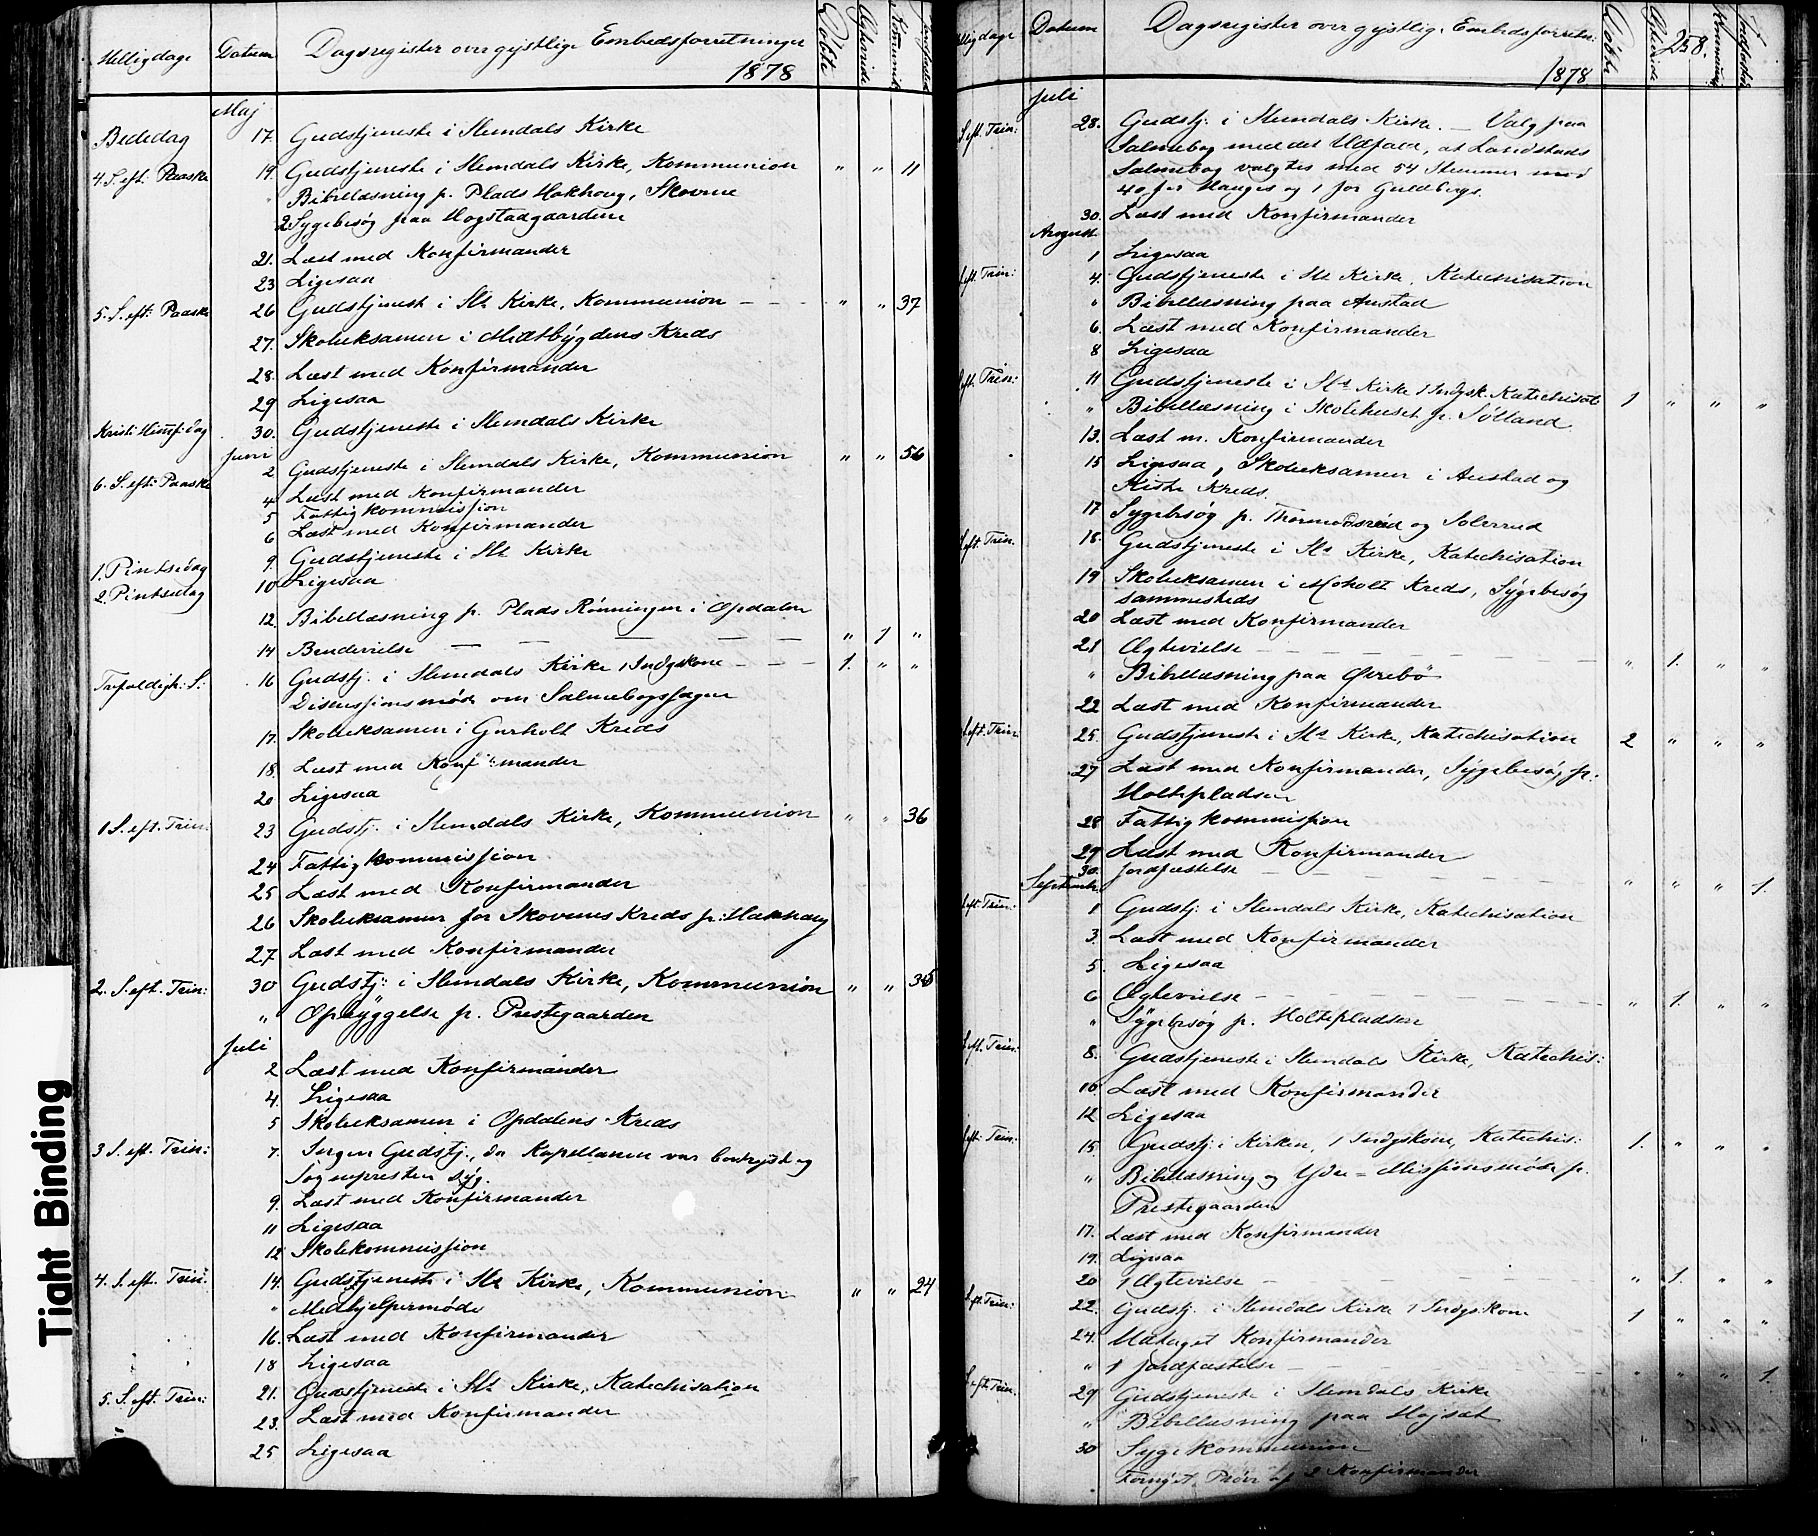 Helligdage Datum Dagsregister over gejstlige Embedsforretninger 1878 Døbte Egteviede Kommunik. Jordfæstede
Maj
Bededag 17. Gudstjeneste i Slemdals Kirke
4. S. eft. Paaske 19. Gudstjeneste i Slemdals Kirke, Kommunion " " 11
" Bibellæsning p. Plads Hakhaug, Skovene
2 Sygebesøg paa Hogstadgaardene
21. Læst med Konfirmander
23 Ligesaa
5. S. eft: Paaske 26 Gudstjenest i Sls Kirke, Kommunion — " " 37
27. Skoleeksamen i Midtbygdens Kreds
28. Læst med Konfirmander
29 Ligesaa
Kristi Himf. Dag 30. Gudstjeneste i Slemdals Kirke
Juni
6. S. eft: Paaske 2 Gudstjeneste i Slemdals Kirke, Kommunion " " 56
4 Læst med Konfirmander
5 Fattigkommission
6 Læst med Konfirmander
1. Pintsedag 9. Gudstjeneste i Sls Kirke
2. Pintsedag 10 Ligesaa
12. Bibellæsning p. Plads Rønningen i Opdalen
14 Brudevielse — — — — " 1 "
Trefoldigh: S: 16 Gudstj. i Slemdals Kirke 1 Indgskone - - - 1. " "
Discussionsmøde om Salmebogssagen
17. Skoleeksamen i Gurholt Kreds
18. Læst med Konfirmander
20 Ligesaa
1 S. eft. Trin: 23 Gudstj. i Slemdals Kirke, Kommunion " " 36
24 Fattigkommission
25 Læst med Konfirmander
26 Skoleeksamen for Skovenes Kreds p: Hakhaug
27. Læst med Konfirmander
2. S. eft. Trin: 30 Gudstj: i Slemdals Kirke, Kommunion " "
" Opbyggelse p. Prestegaarden
Juli
2 Læst med Konfirmander
4. Ligesaa
5 Skoleeksamen i Opdalens Kreds
3 S. eft. Trin: 7. Ingen Gudstj., da Kapellanen var bortrejst og
Sognepresten syg.
9. Læst med Konfirmander
11 Ligesaa
12 Skolekommission
4. S. eft. Trin: 14. Gudstjeneste i Sls Kirke, Kommunion " " 24
" Medhjelpermøde
16. Læst med Konfirmander
18 Ligesaa
5. S. eft. Trin: 21. Gudstjeneste i Sls Kirke, Katechisation
23. Læst med Konfirmander
25 Ligesaa
Helligdage Datum Dagsregister over gejstlig: Embedsforretn: 1878. Døbte Egteviede 258. Kommunik Jordfæstede
Juli
S. eft. Trin: 28. Gudstj. i Slemdals Kirke. — Valg paa
Salmebog med det Udfald, at Landstads
Salmebog valgtes med 54 Stemmer mod
40 for Hauges og 1 for Guldbergs.
30. Læst med Konfirmander
August.
1 Ligesaa
S. eft. Trin: 4. Gudstjeneste i Sls Kirke, Katechisation
" Bibellæsning paa Austad
6. Læst med Konfirmander
8 Ligesaa
S. eft. Trin: 11 Gudstjeneste i Sls Kirke 1 Indgsk. Katechisat 1 " " "
" Bibellæsning i Skolehuset p. Solland
13. Læst m. Konfirmander
15 Ligesaa, Skoleeksamen i Austad og
Kiste Kreds.
17 Sygebesøg p. Thormodsrød og Solerud
S. eft. Trin. 18. Gudstjeneste i Sls Kirke, Katechisation
19 Skoleeksamen i Moholt Kreds, Sygebesøg
sammesteds
20 Læst med Konfirmander
21 Ægtevielse — — — — " 1. " "
" Bibellæsning paa Øvrebø
22 Læst med Konfirmander
S. eft. Trin: 25. Gudstjeneste i Sls Kirke, Katechisation 2 " " "
27 Læst med Konfirmander, Sygebesøg p.
Holtepladsen
28 Fattigkommission
29 Læst med Konfirmander
30. Jordfæstelse — — — — " " " 1.
Septemb.
S. eft. Trin: 1 Gudstj. i Slemdals Kirke, Katechisation
3. Læst med Konfirmander
5. Ligesaa
6 Ægtevielse — — — — " 1. " "
" Sygebesøg p. Holtepladsen
S. eft. Trin: 8. Gudstjeneste i Slemdals Kirke, Katechis:
10. Læst med Konfirmander
12 Ligesaa
S. eft. Trin: 15. Gudstj. i Kirken, 1 Indgskone, Katechis: 1. " " "
" Bibellæsning og Ydre-Missionsmøde p.
Prestegaarden
17. Læst med Konfirmander
19. Ligesaa
20 1 Ægtevielse — — " 1. " "
S. eft. Trin: 22. Gudstj. i Slemdals Kirke 1 Indgskone 1 " " "
24. Udtaget Konfirmander
" 1 Jordfæstelse — — " " " 1.
S. eft. Trin. 29 Gudstjeneste i Slemdals Kirke
" Bibellæsning paa Højsæt
30 Sygekommunion
Fornyet Prøve af 2 Konfirmander
Tight Binding